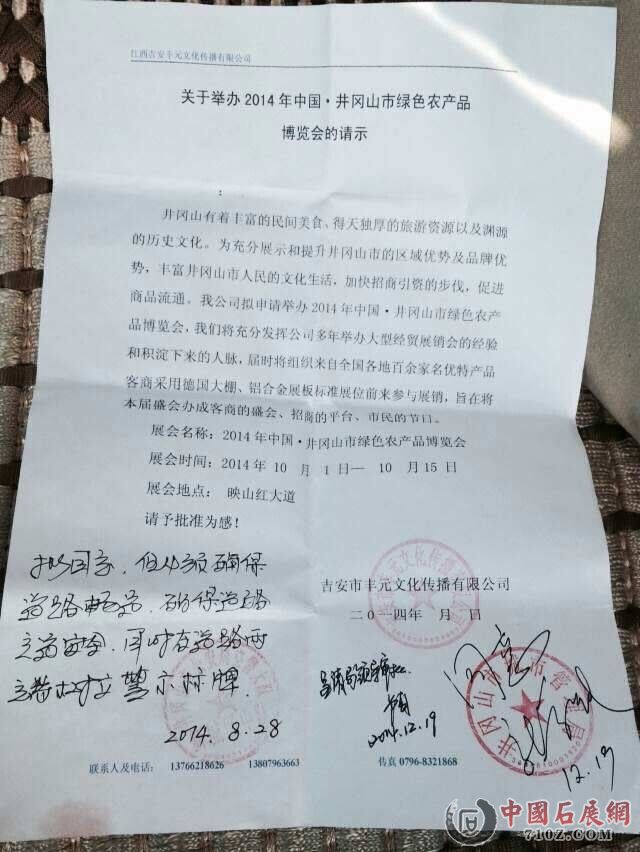 江西吉安丰元文化传播有限公司
关于举办 2014 年中国·井冈山市绿色农产品
博览会的请示
：
井冈山有着丰富的民间美食、得天独厚的旅游资源以及渊源
的历史文化。为充分展示和提升井冈山市的区域优势及品牌优
势，丰富井冈山市人民的文化生活，加快招商引资的步伐，促进
商品流通。我公司拟申请举办 2014 年中国·井冈山市绿色农产
品博览会，我们将充分发挥公司多年举办大型经贸展销会的经验
和积淀下来的人脉，届时将组织来自全国各地百余家名优特产品
客商采用德国大棚、铝合金展板标准展位前来参与展销，旨在将
本届盛会办成客商的盛会、招商的平台、市民的节日。
展会名称：2014 年中国·井冈山市绿色农产品博览会
展会时间：2014 年 10 月 1 日— 10 月 15 日
展会地点： 映山红大道
请予批准为感！
确保
道路 确保道路
安全，同时在道路两
警示标牌
2014.8.28
吉安市丰元文化传播有限公司
二〇一四年 月 日
丰元文化传播有限
井冈山市 市 管 局
2014.12.19
12.19
联系人及电话： 13766218626 13807963663
传真 0796-8321868
中國石展網
710Z.COM